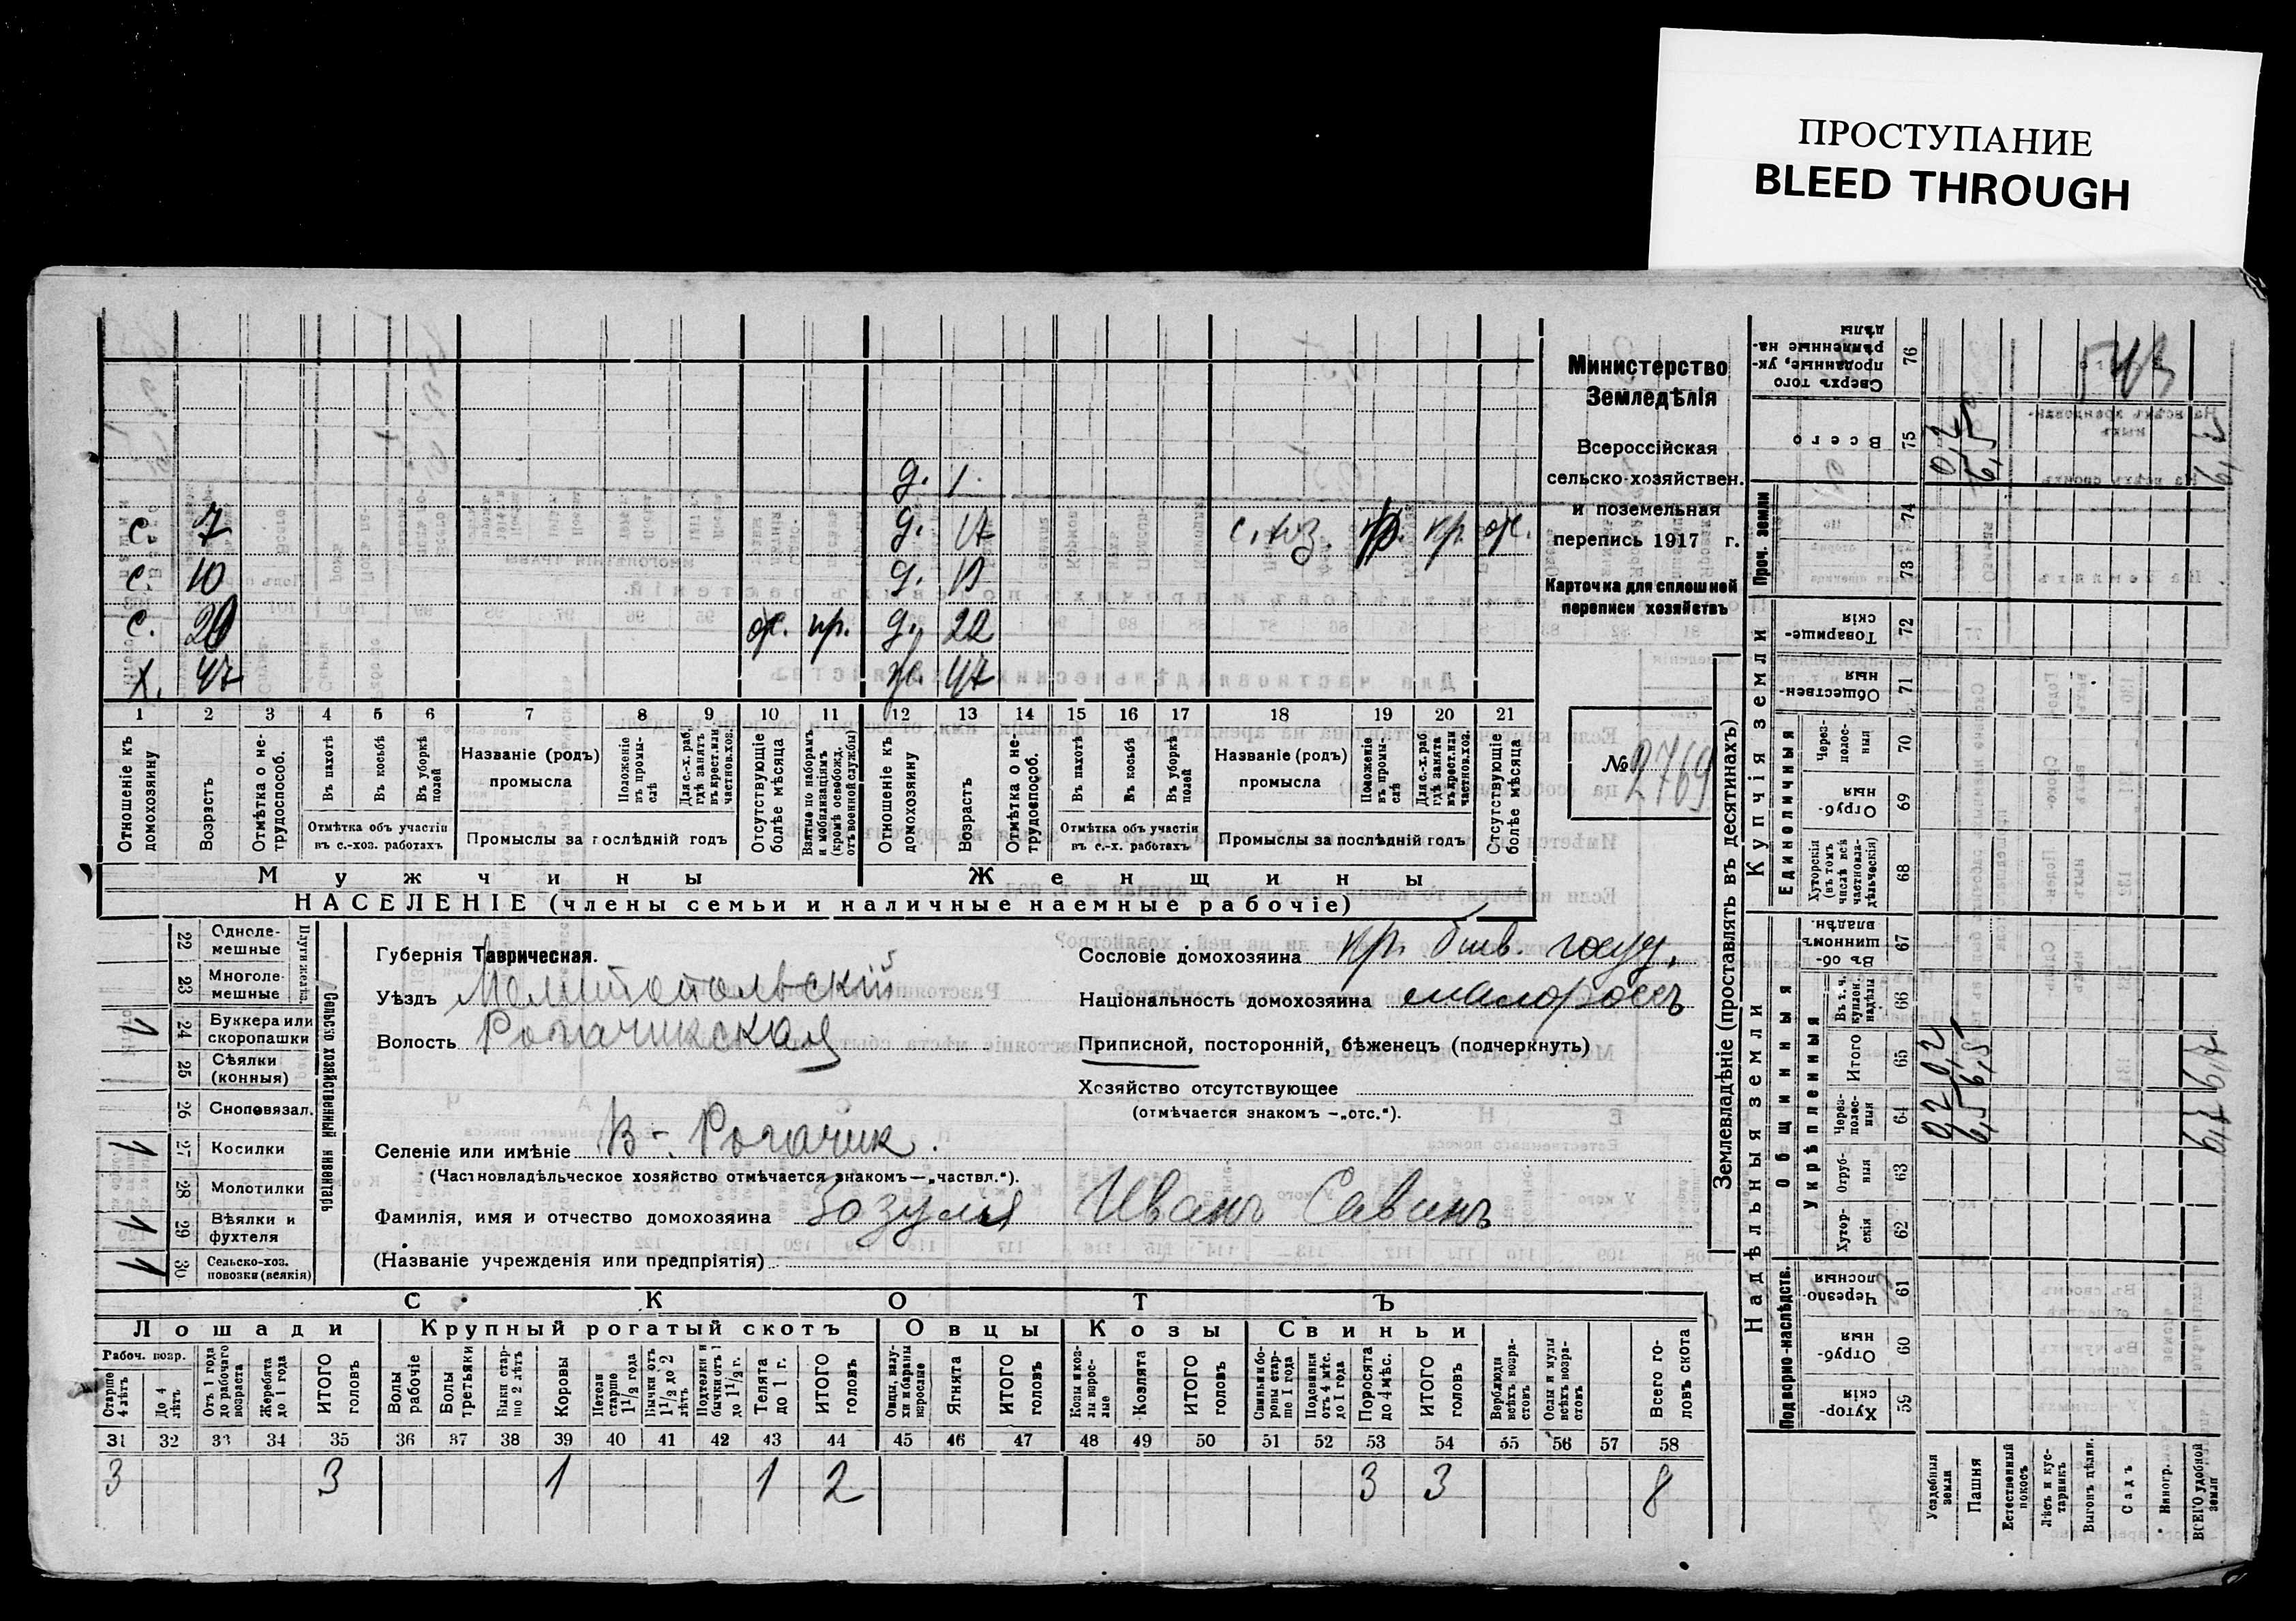 ПРОСТУПАНИЕ
BLEED THROUGH
д. 1.
с. 7 д. 17 с. хоз. кр. от.
с. 10 д. 13
с. 20 от. пр. д. 22
х. 47 ж. 47
1 2 3 4 5 6 7 8 9 10 11 12 13 14 15 16 17 18 19 20 21
Отношеніе къ домохозяину
Возрастъ
Отмѣтка о нетрудоспособ.
Въ пахотѣ
Въ косьбѣ
Въ уборкѣ полей
Отмѣтка объ участіи въ с.-хоз. работахъ
Названіе (родъ) промысла
Положеніе въ промыслѣ
Для с.-х. раб. гдѣ занятъ въ крест. или частнов. хоз.
Промыслы за послѣдній годъ
Отсутствующіе болѣе мѣсяца
Взятые по наборамъ и мобилизаціямъ (кромѣ освобожд. отъ военной службы)
Отношеніе къ домохозяину
Возрастъ
Отмѣтка о нетрудоспособ.
Въ пахотѣ
Въ косьбѣ
Въ уборкѣ полей
Отмѣтка объ участіи въ с.-х. работахъ
Названіе (родъ) промысла
Положеніе въ промыслѣ
Для с.-х. раб. гдѣ занята въ крест. или частнов. хоз.
Промыслы за послѣдній годъ
Отсутствующіе болѣе мѣсяца
Мужчины
Женщины
НАСЕЛЕНІЕ (члены семьи и наличные наемные рабочіе)
Министерство
Земледѣлія
Всероссійская
сельско-хозяйствен.
и поземельная
перепись 1917 г.
Карточка для сплошной
переписи хозяйствъ
№ 2769
Сельско-хозяйственный инвентарь
Плуги желѣзн.
22 Однолемешные
23 Многолемешные
1 24 Буккера или скоропашки
25 Сѣялки (конныя)
26 Сноповязал.
1 27 Косилки
28 Молотилки
1 29 Вѣялки и фухтеля
1 30 Сельско-хоз. повозки (всякія)
Губернія Таврическая.
Уѣздъ Мелитопольскій
Волость Рогачикская
Селеніе или имѣніе В-. Рогачик.
(Частновладѣльческое хозяйство отмѣчается знакомъ—„частвл.“).
Фамилія, имя и отчество домохозяина Зозуля Иванъ Савинъ
(Названіе учрежденія или предпріятія)
Сословіе домохозяина кр. бывш. госуд.
Національность домохозяина малороссъ
Приписной, посторонній, бѣженецъ (подчеркнуть)
Хозяйство отсутствующее
(отмѣчается знакомъ —„отс.“).
СКОТЪ
Лошади
Крупный рогатый скотъ
Овцы
Козы
Свиньи
Рабоч. возр.
Старше 4 лѣтъ
До 4 лѣтъ
Отъ 1 года до рабочаго возраста
Жеребята до 1 года
ИТОГО головъ
Волы рабочіе
Волы третьяки
Быки старше 2 лѣтъ
Коровы
Нетели старше 1 1/2 года
Бычки отъ 1 1/2 до 2 лѣтъ
Подтелки и бычки отъ 1 до 1 1/2 г.
Телята до 1 г.
ИТОГО головъ
Овцы, валухи и бараны взрослые
Ягнята
ИТОГО головъ
Козы и козлы взрослые
Козлята
ИТОГО головъ
Свиньи и боровы старше 1 года
Подсвинки отъ 4 мѣс. до 1 года
Поросята до 4 мѣс.
ИТОГО головъ
Верблюды всѣхъ возрастовъ
Ослы и мулы всѣхъ возрастовъ
Всего головъ скота
31 32 33 34 35 36 37 38 39 40 41 42 43 44 45 46 47 48 49 50 51 52 53 54 55 56 57 58
3 3 1 1 2 3 3 8
Землевладѣніе (проставлять въ десятинахъ)
Надѣльныя земли
Купчія земли
Проч. земли
Подворно-наслѣдств.
Общинныя
Укрѣпленныя
Единоличныя
59 Хуторскія
60 Отрубныя
61 Черезполосныя
62 Хуторскія
63 Отрубныя
64 Черезполосныя
65 Итого
66 Въ т. ч. куплен. надѣлы
67 Въ общинномъ владѣн.
68 Хуторскія (въ томъ числѣ всѣ частновладѣльческія)
69 Отрубныя
70 Черезполосныя
71 Общественныя
72 Товарищескія
73
74
75 Всего
76 Сверхъ того проданные, укрѣпленные надѣлы
Усадебная земля 0,2 0,2 0,2
Пашня 6,5 6,5 6,5
Естественный покосъ
Лѣсъ и кустарникъ
Выгонъ дѣлим.
Садъ
Виногр.
ВСЕГО удобной земли
543